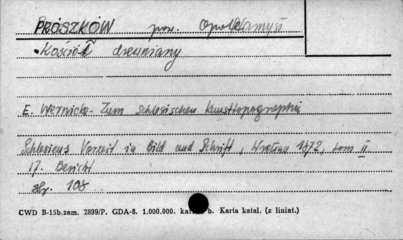 PRÓSZKÓW pow. Opole
Kościół drewniany
E. Wernicke - Zum schlesischen Kunsttopographie
Schlesiens Vorzeit in Bild und Schrift, Wrocław 1872, tom II
17. Bericht
str. 108
CWD B-15b.zam. 2899/P. GDA-8. 1.000.000. b. Karta katal. (z liniat.)